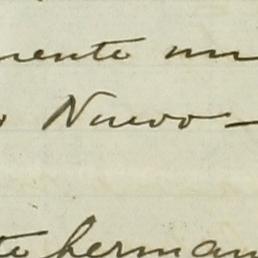 mente un
o Nuevo —
te herman